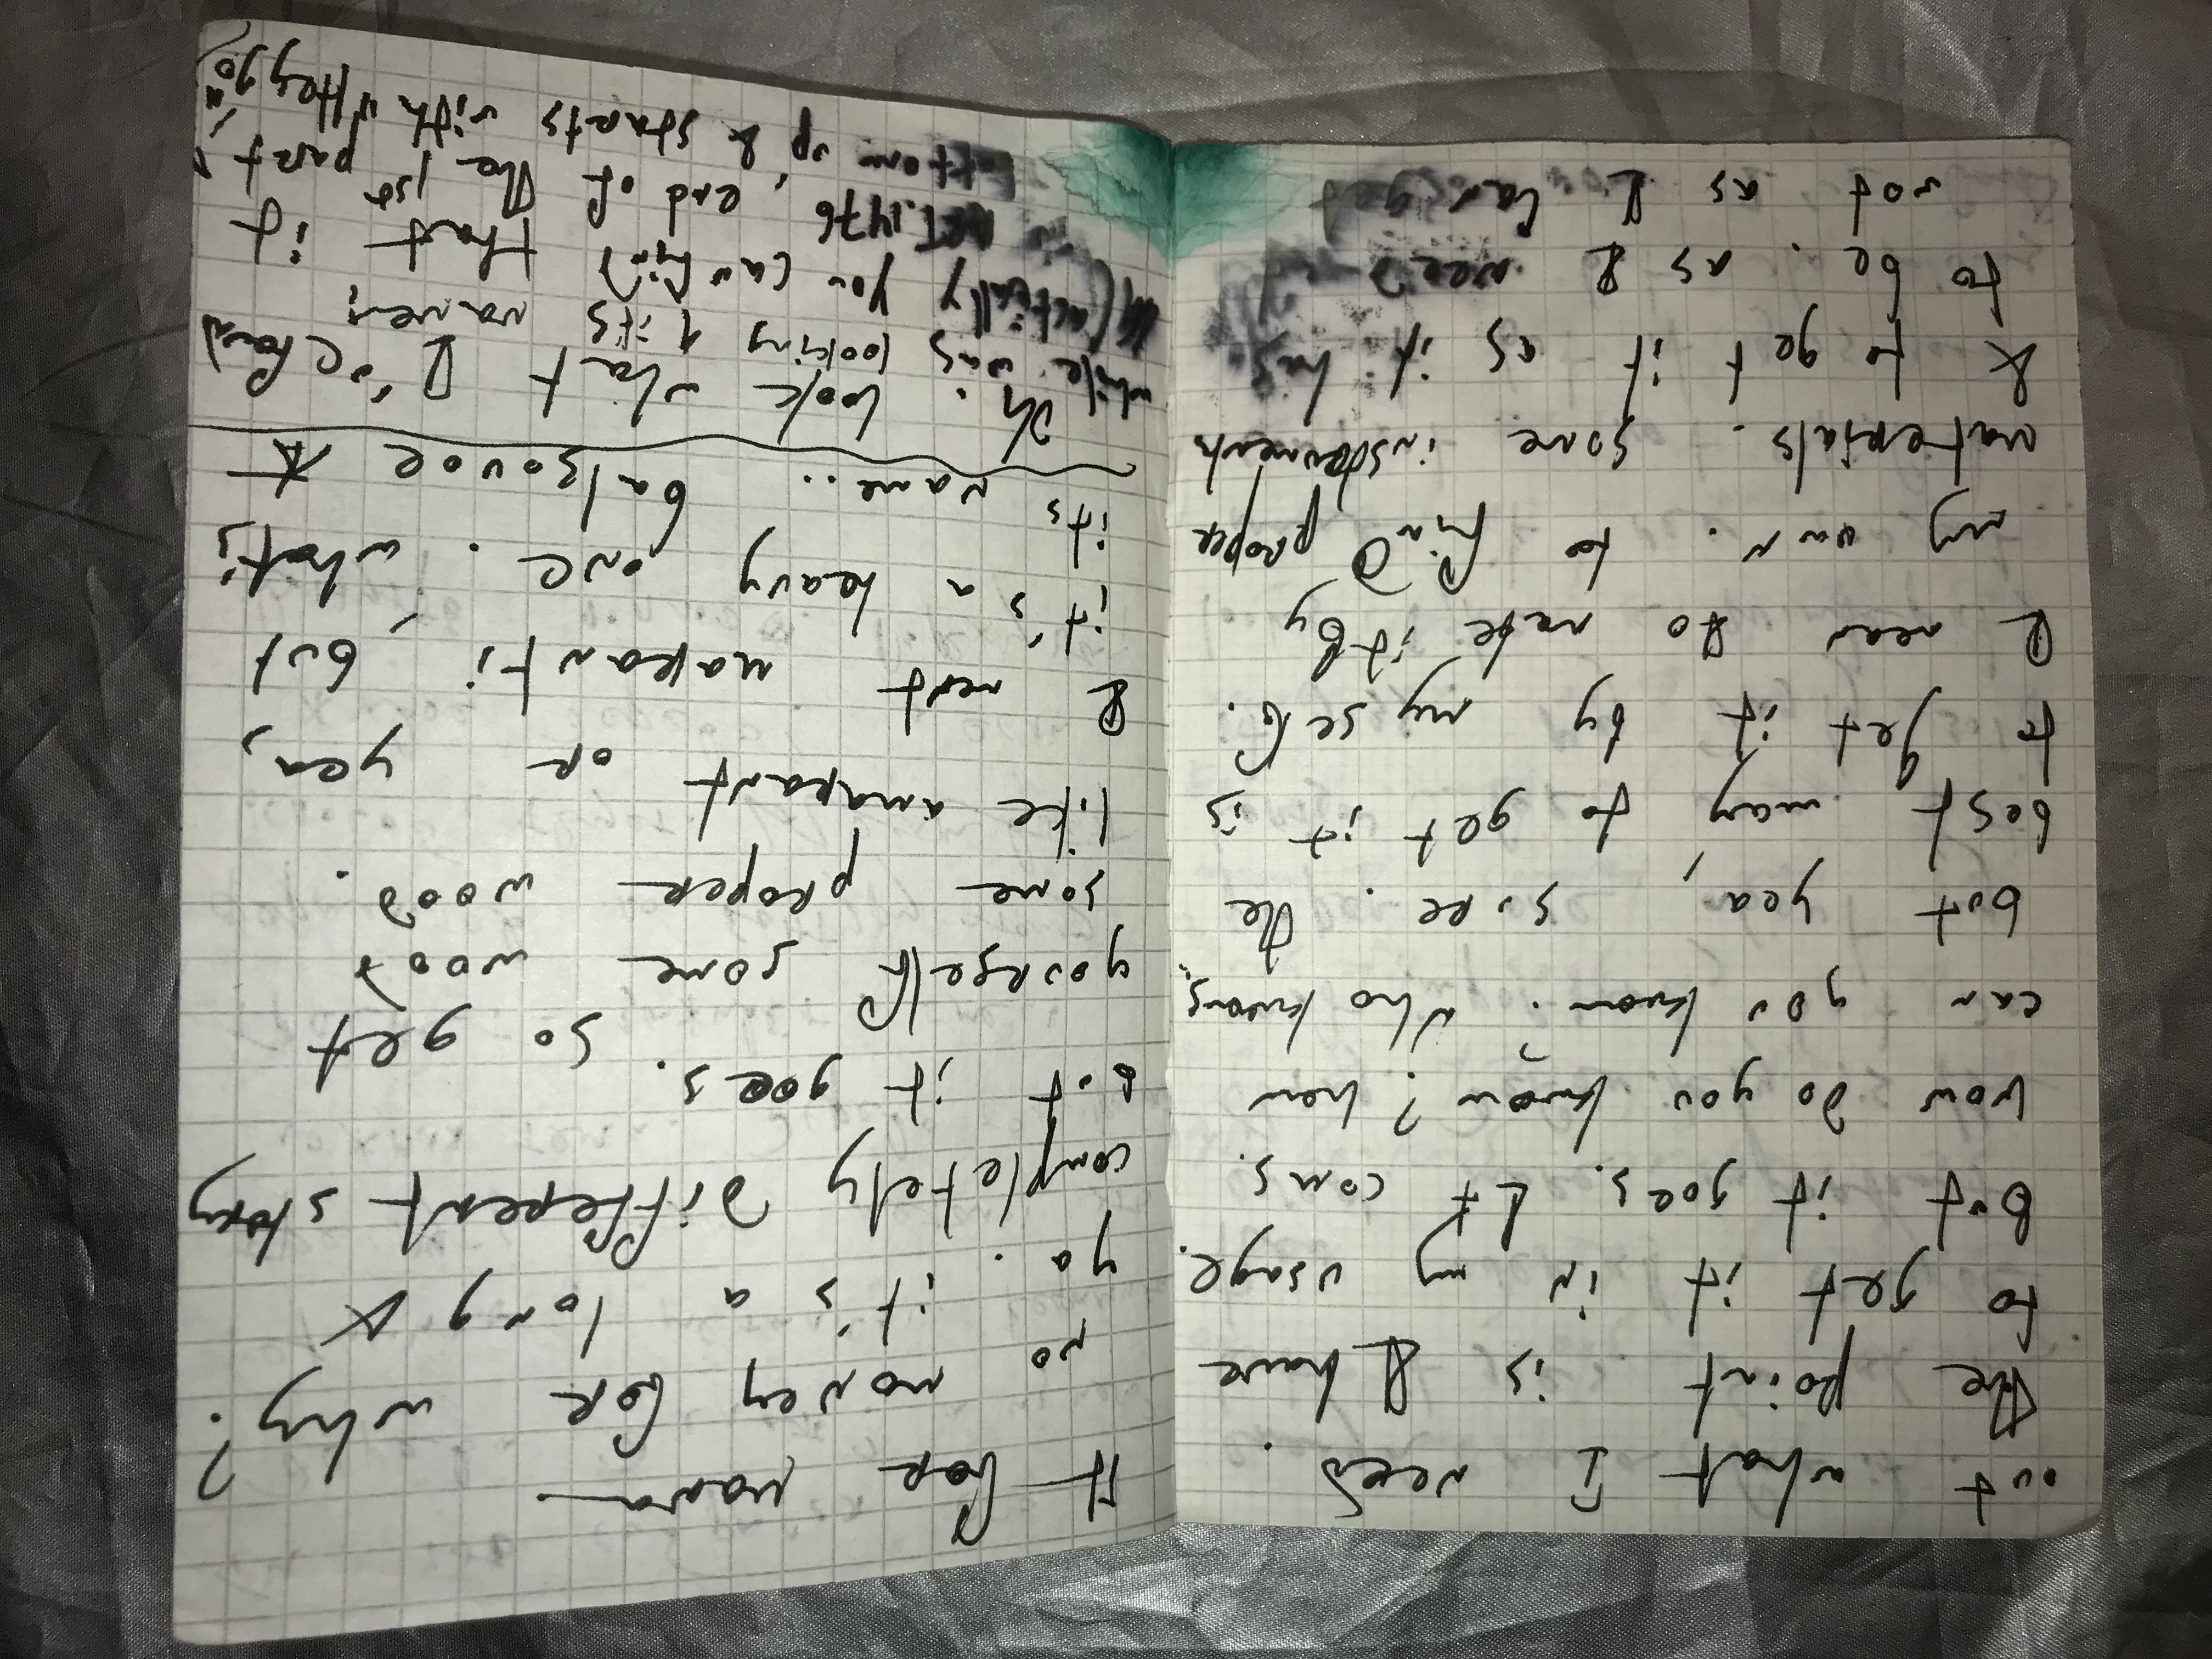 out what I need.
The point is I have
to get it in my usage.
But it goes. It coms.
how do you know? how
can you know? Who knows.
but yea, sure. The
best way to get it is
to get it by my self.
I mean to make it by
my own. to find proper
materials. some instruments
& to get it as it has
to be. as I need
not as I can get
it for mana.
no money for why?
ya. it's a long &
completely different story
but it goes. So get
yourself some wood
some proper wood.
like amarant or yea,
I ment maranti, but
it's a heavy one. what's
its name..
Oh. look what I've found
while was looking 4 its name,
(actually you can find that it
ART.1476, end of the 1st part,
bottom up & starts with "Hey go")